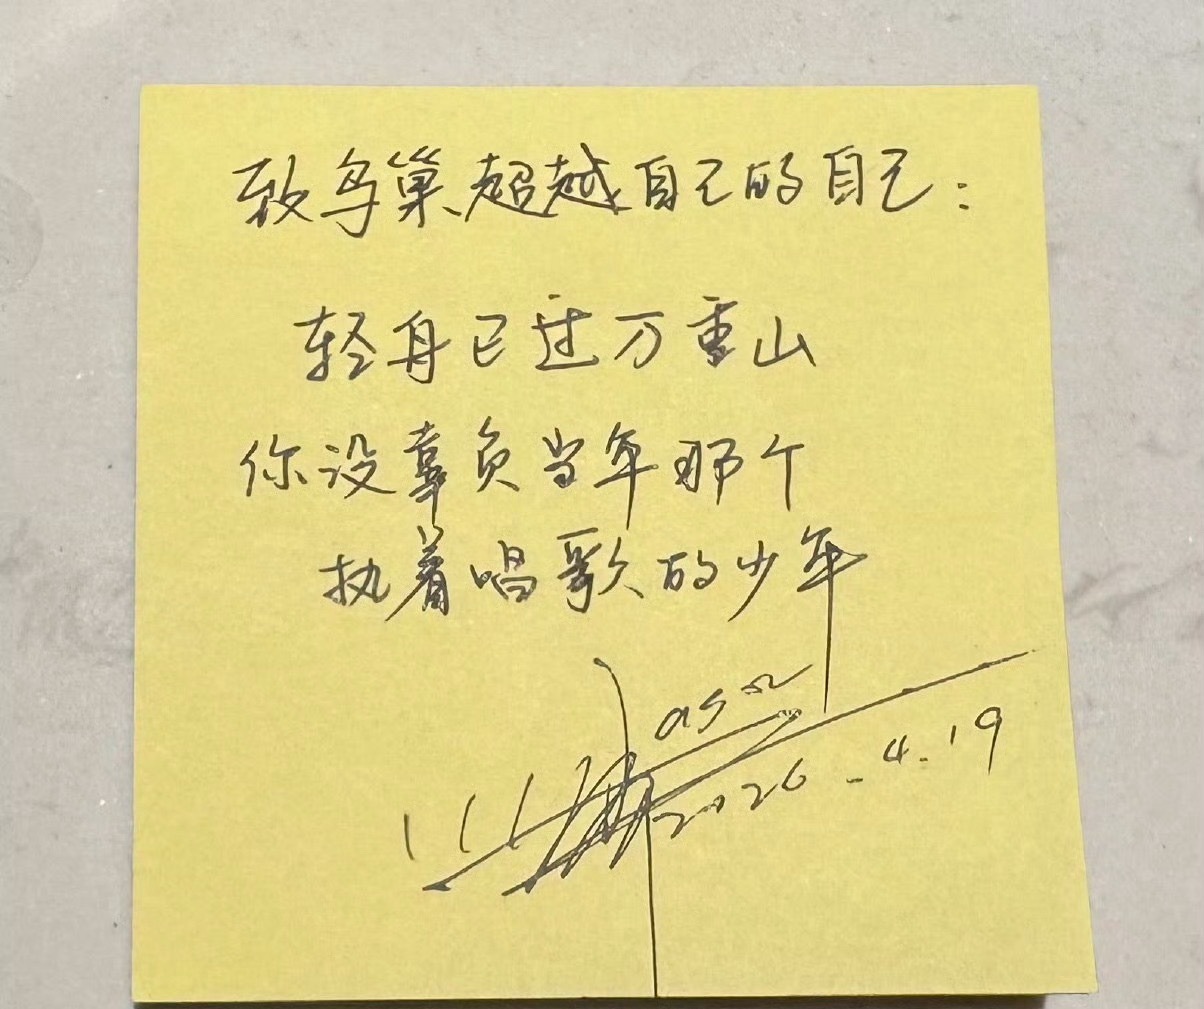 致鸟巢超越自己的自己：
轻舟已过万重山
你没辜负当年那个
执着唱歌的少年
2026.4.19